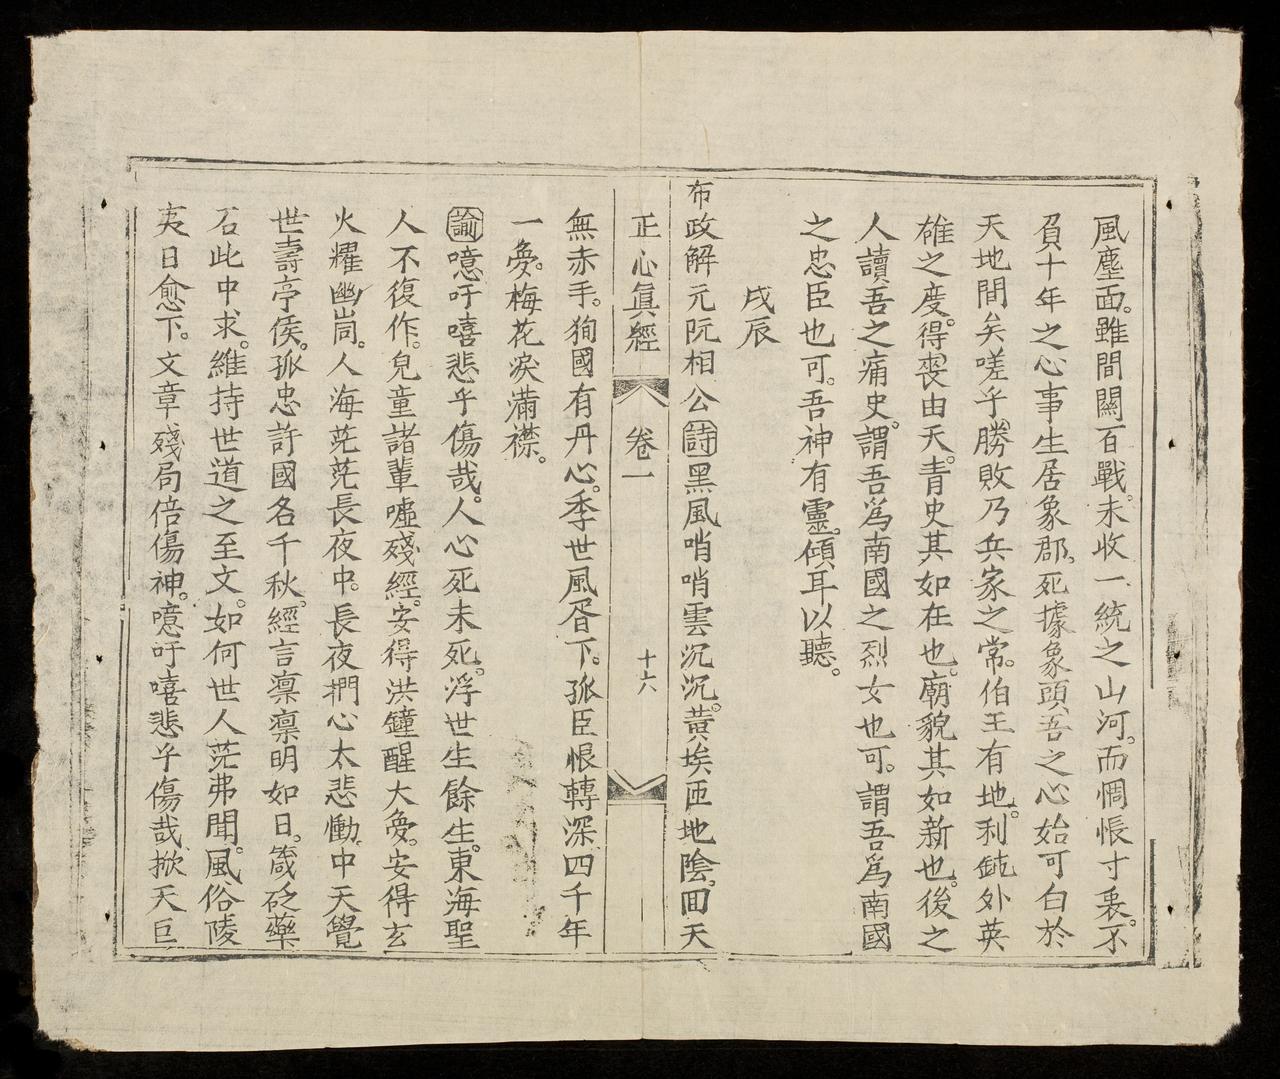 風塵面。雖間關百戰。未收一統之山河。而惆悵寸衷。不
負十年之心事生居象郡。死據象頭吾之心始可白於
天地間矣嗟乎勝敗乃兵家之常。伯王有地。利鈍外英
雄之度。得喪由天。青史其如在也。廟貌其如新也。後之
人讀吾之痛史。謂吾爲南國之烈女也可。謂吾爲南國
之忠臣也可。吾神有靈。傾耳以聽。
戌辰
布政解元阮相公詩黑風哨哨雲沉沉。黃埃匝地陰。回天
正心眞經 卷一 十六
無赤手。狥國有丹心。季世風胥下。孤臣恨轉深四千年
一夢。梅花淚滿襟。
諭噫吁嘻悲乎傷哉。人心死未死。浮世生餘生。東海聖
人不復作。兒童諸輩嘘殘經。安得洪鐘醒大夢。安得玄
火耀幽峝。人海茫茫長夜中。長夜捫心太悲慟。中天覺
世壽亭侯。孤忠許國名千秋。經言凛凛明如日。箴砭藥
石此中求。維持世道之至文。如何世人茫弗聞。風俗陵
夷日愈下。文章殘局倍傷神。噫吁嘻悲乎傷哉掀天巨